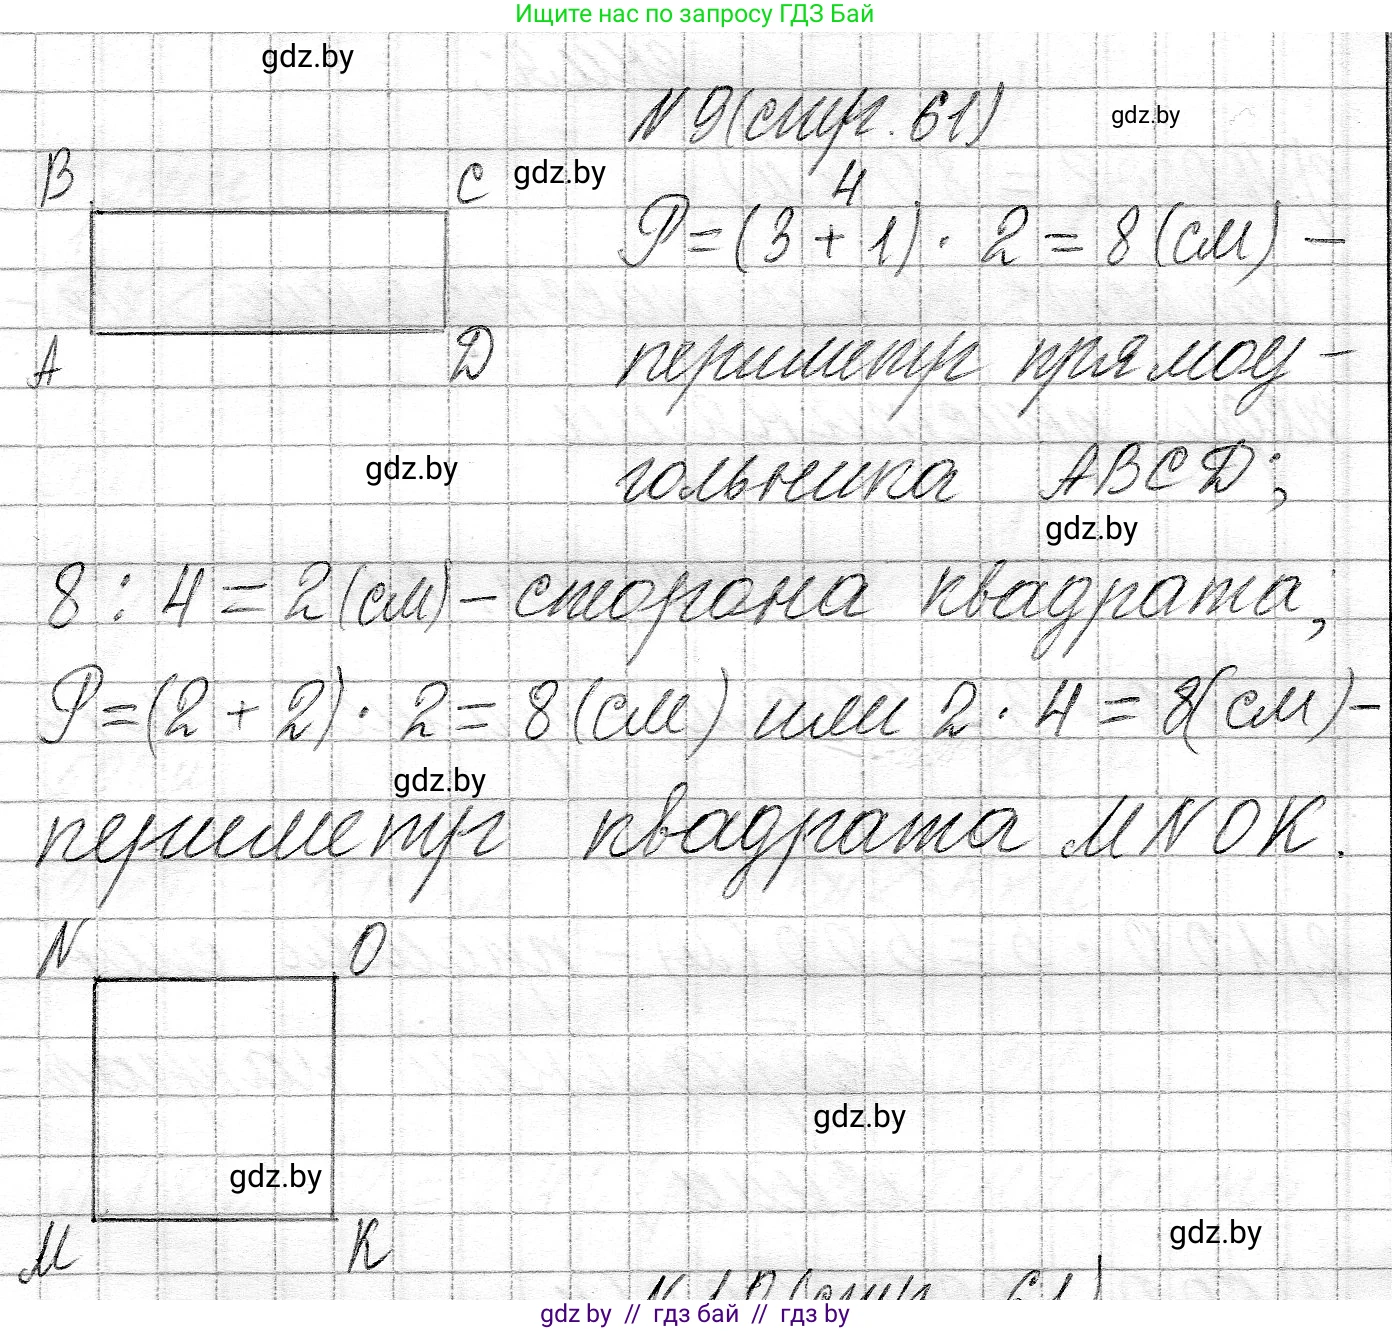 Ищите нас по запросу ГДЗ Бай
gdz.by
N 9 (стр. 61)
gdz.by
B
C
gdz.by
4
P=(3+1)·2=8(см)-
A
D
периметр прямоу-
gdz.by
гольника ABCD;
gdz.by
8:4=2(см)-сторона квадрата;
P=(2+2)·2=8(см) или 2·4=8(см)-
gdz.by
периметр квадрата MNOK.
N
O
gdz.by
gdz.by
M
K
gdz.by
N 10 (стр. 61)
gdz.by // гдз бай // гдз by